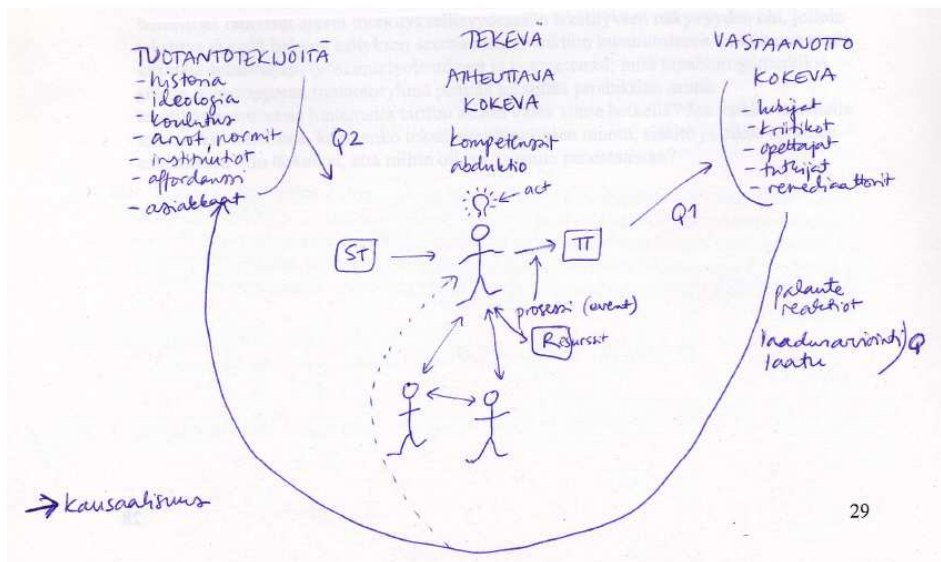 TUOTANTOTEKIJÖITÄ
- historia
- ideologia
- koulutus
- arvot, normit
- instituutiot
- affordanssi
- asiakkaat
Q2
TEKEVÄ
AIHEUTTAVA
KOKEVA
kompetenssit
abduktio
act
ST
TT
prosessi (event)
Resurssit
VASTAANOTTO
KOKEVA
- lukijat
- kriitikot
- opettajat
- tutkijat
- remediaattorit
Q1
palaute
reaktiot
laadunarviointi
laatu
Q
→ kausaalisuus
29